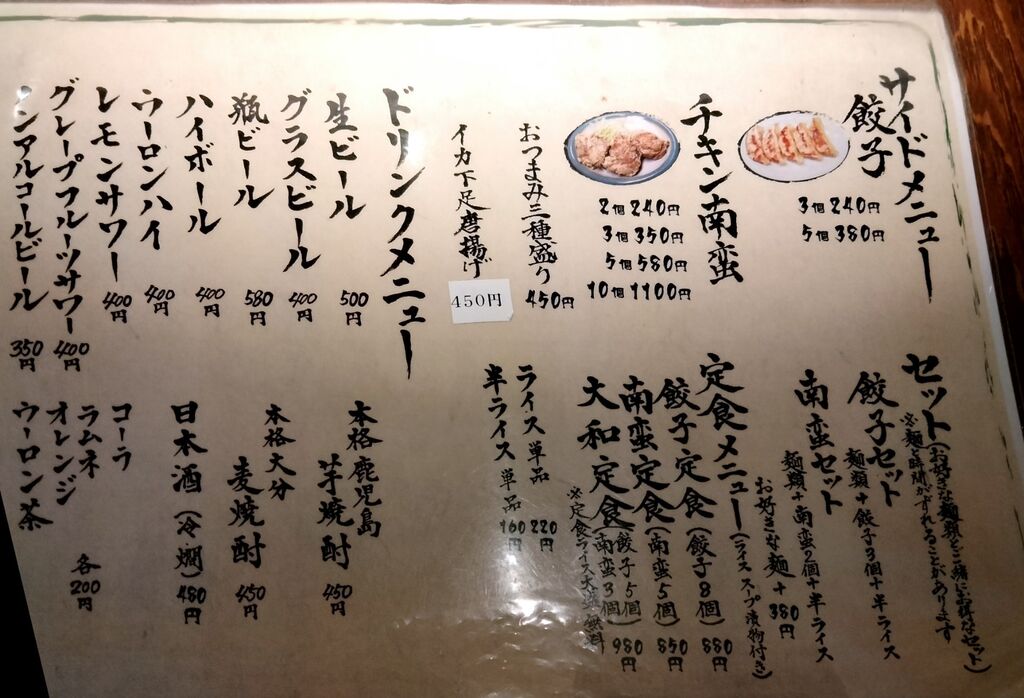 サイドメニュー
餃子
3個 240円
5個 380円
チキン南蛮
2個 240円
3個 350円
5個 580円
10個 1100円
おつまみ三種盛り 450円
イカ下足唐揚げ 450円
ドリンクメニュー
生ビール 500円
グラスビール 400円
瓶ビール 580円
ハイボール 400円
ウーロンハイ 400円
レモンサワー 400円
グレープフルーツサワー 400円
ノンアルコールビール 350円
セット(お好きな麺類とご一緒にお得なセット)
※麺と時間がずれることがあります
餃子セット
麺類+餃子3個+半ライス
南蛮セット
麺類+南蛮2個+半ライス
お好きな麺+380円
定食メニュー(ライススープ漬物付き)
餃子定食(餃子8個) 880円
南蛮定食(南蛮5個) 850円
大和定食(餃子5個 南蛮3個) 980円
※定食ライス大盛無料
ライス 単品 220円
半ライス 単品 160円
本格鹿児島
芋焼酎 450円
本格大分
麦焼酎 450円
日本酒(冷燗) 480円
コーラ
ラムネ
オレンジ
ウーロン茶
各200円